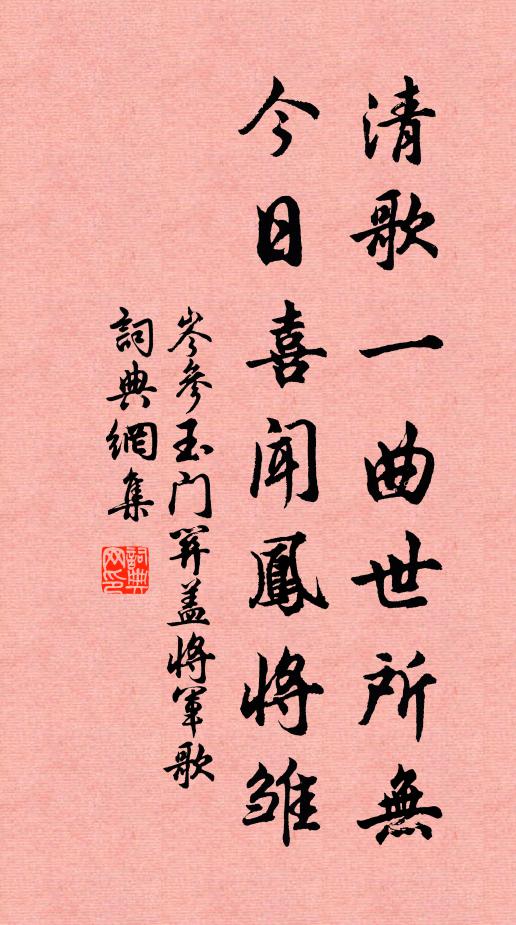 清歌一曲世所無
今日喜聞鳳將雛
岑參玉门関盖將軍歌
詞典網集
詞典网印